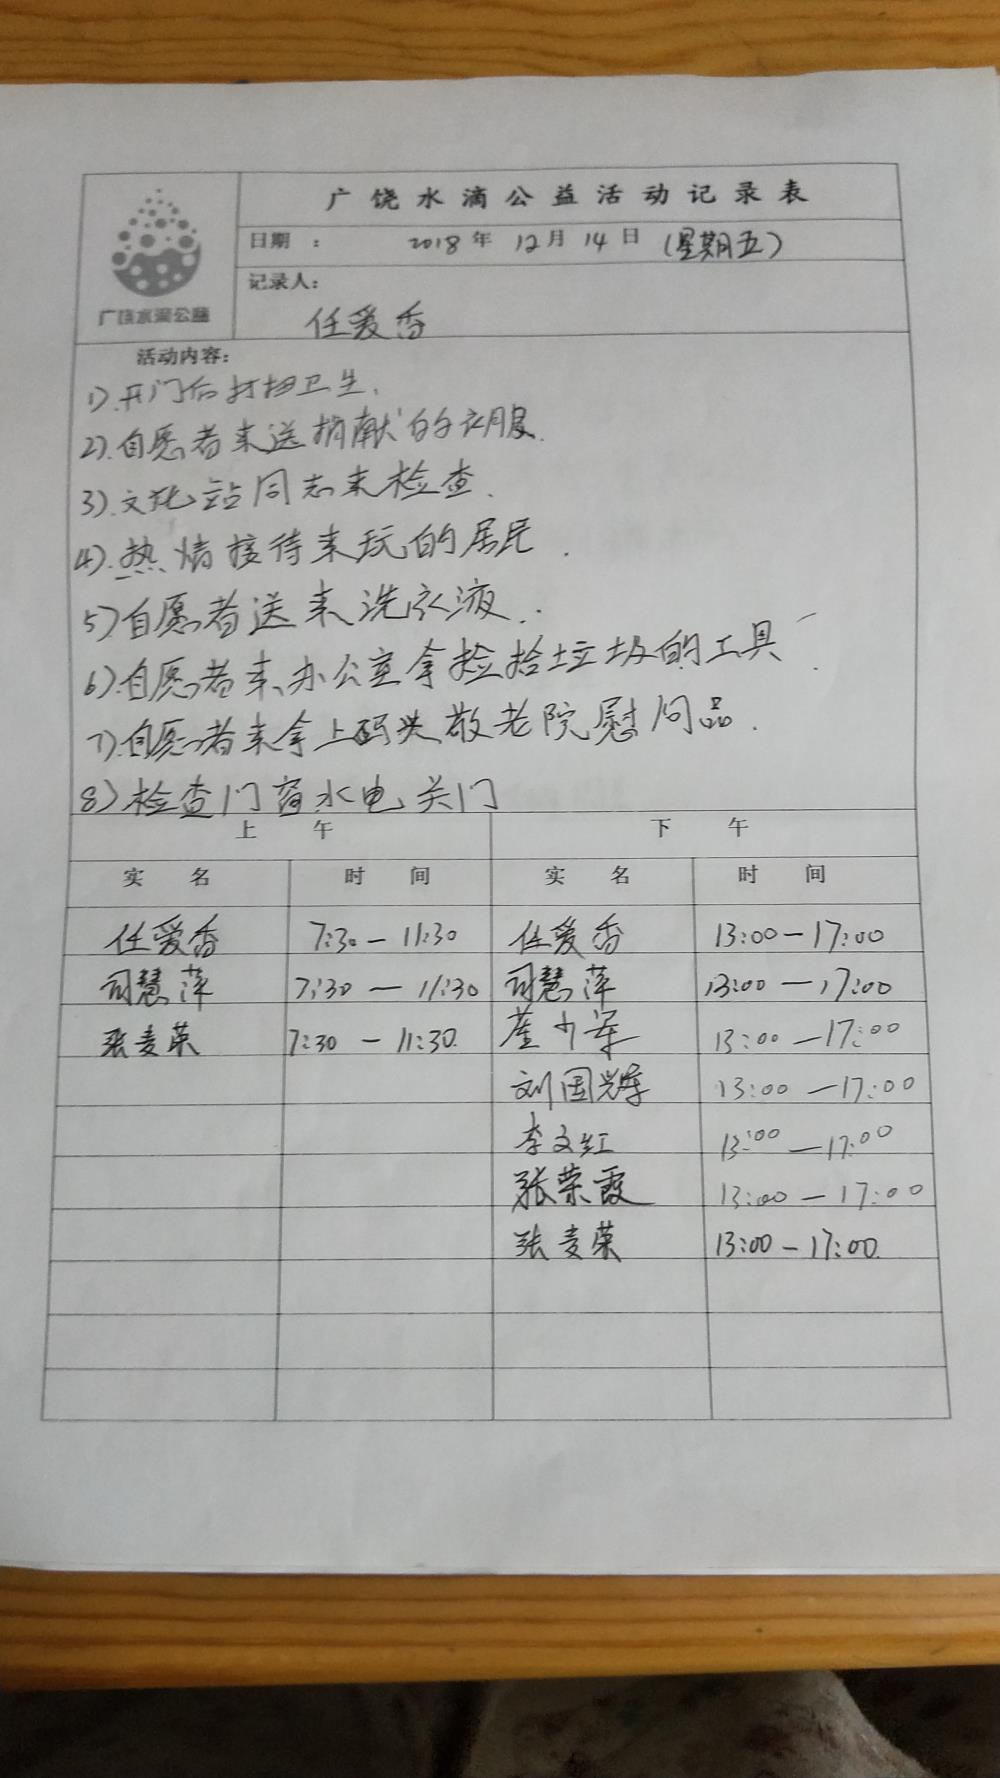 广饶水滴公益活动记录表
日期 ： 2018年 12月 14日 (星期五)
广饶水滴公益
记录人:
任爱香
活动内容:
1).开门后打扫卫生.
2).自愿者来送捐献的衣服.
3).文化站同志来检查.
4).热情接待来玩的居民.
5)自愿者送来洗衣液.
6).自愿者来办公室拿捡拾垃圾的工具.
7).自愿者来拿上码头敬老院慰问品.
8)检查门窗水电关门
上 午 下 午
实 名 时 间 实 名 时 间
任爱香 7:30—11:30 任爱香 13:00—17:00
司慧萍 7:30—11:30 司慧萍 13:00—17:00
张麦荣 7:30—11:30. 崔少军 13:00—17:00
刘国辉 13:00—17:00
李文红 13:00—17:00
张荣霞 13:00—17:00
张麦荣 13:00—17:00.